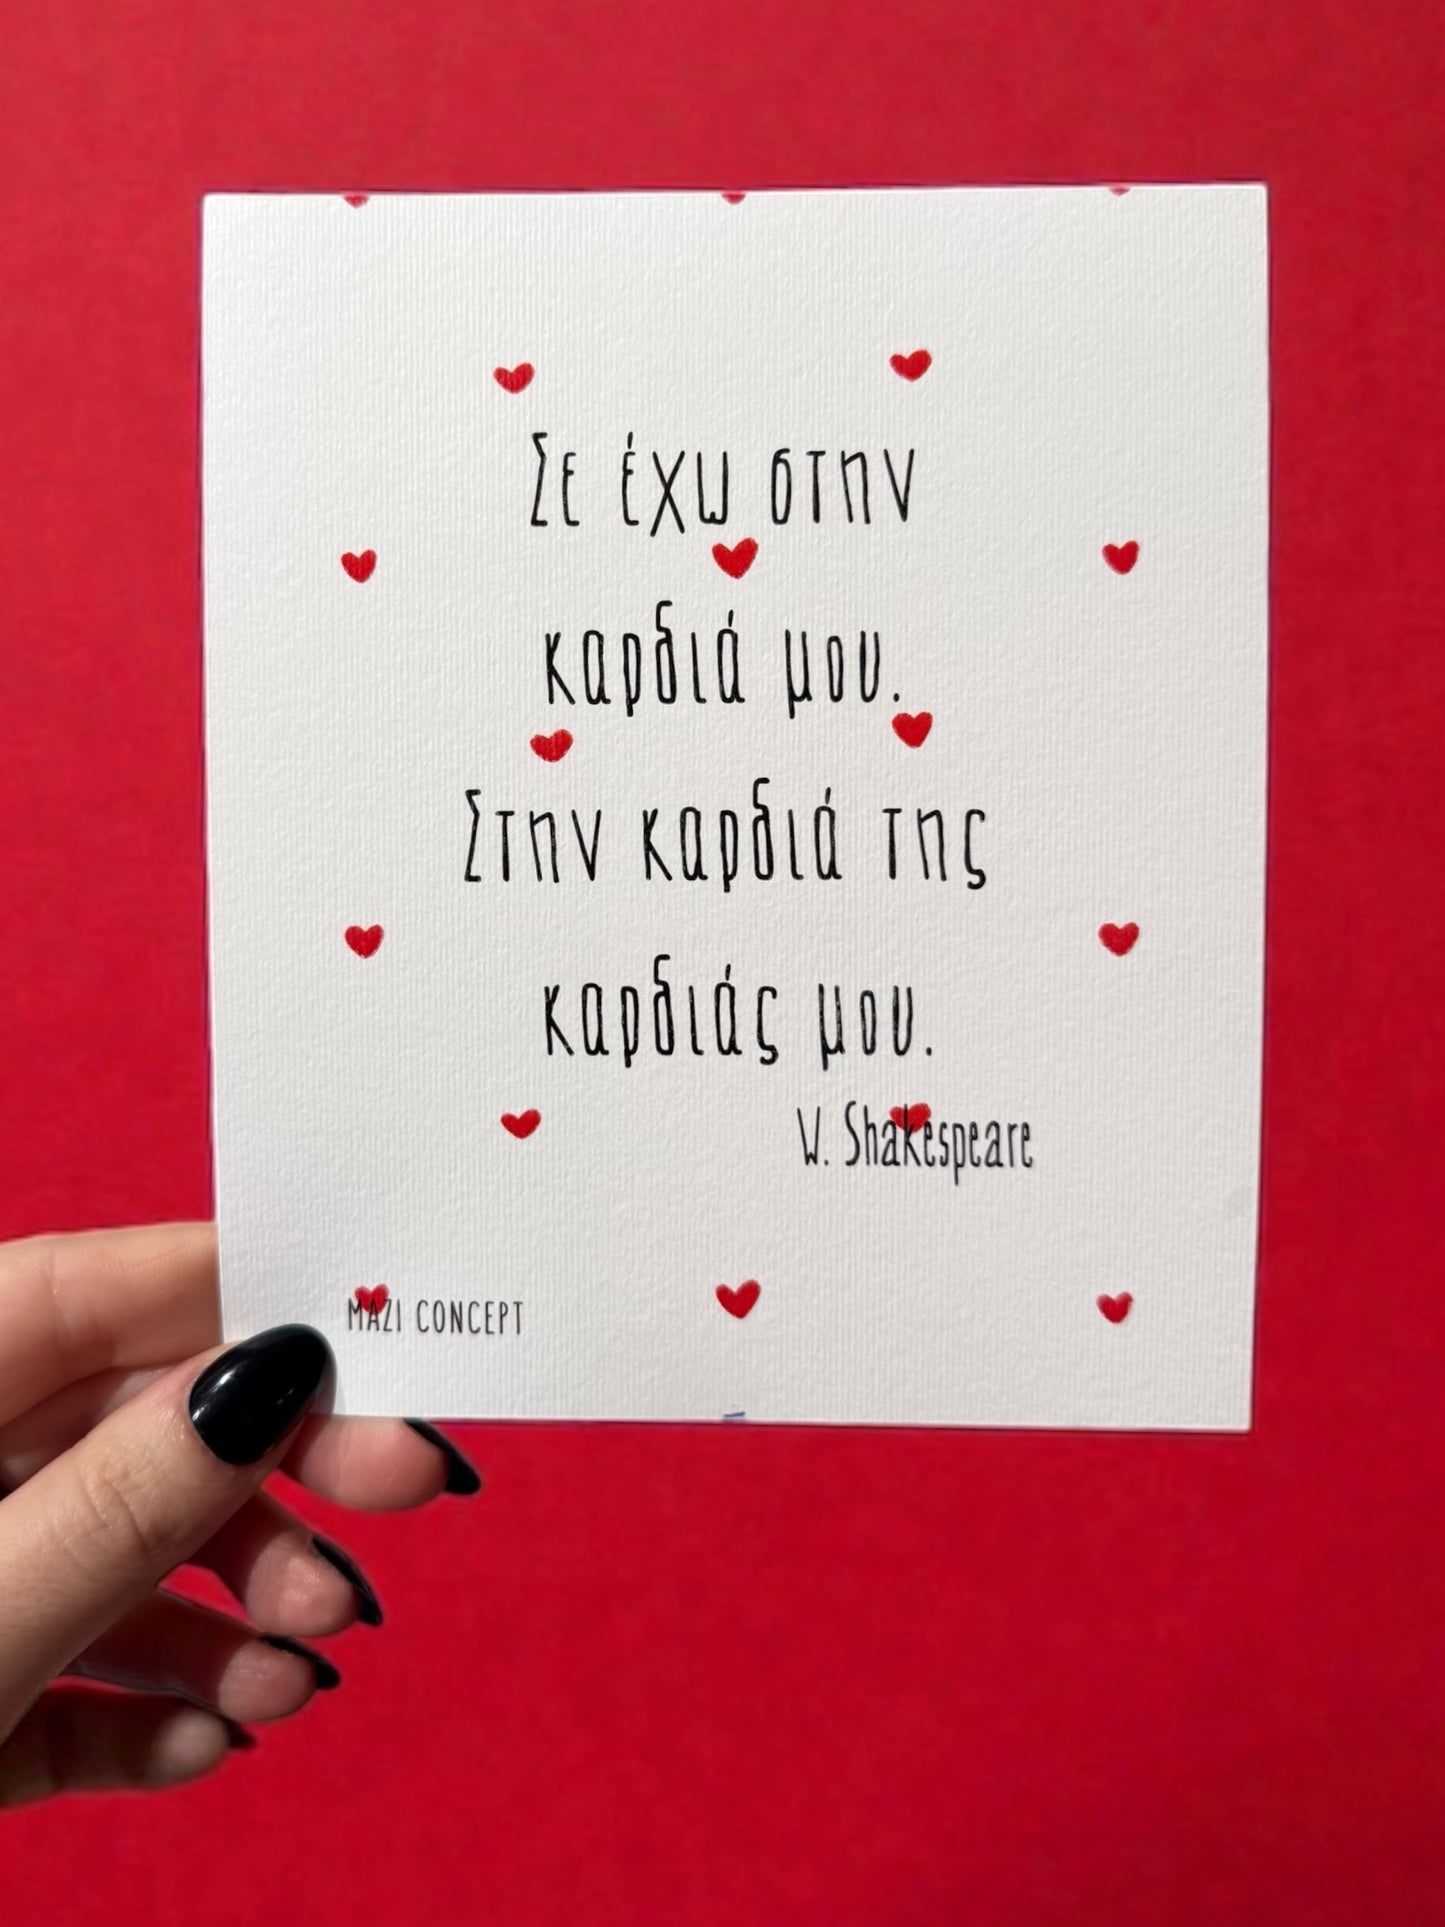 Σε έχω στην
καρδιά μου.
Στην καρδιά της
καρδιάς μου.
W. Shakespeare
MAZI CONCEPT